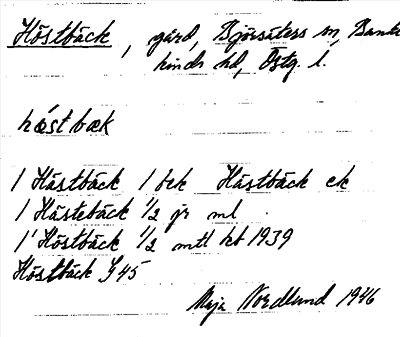 Höstbäck, gård, Björsäters sn, Bank
hinds hd, Östg. l.
hǽstbæk
1 Hästbäck 1 bek Hästbäck ek
1 Hästebäck 1/2 jr ml
1 Höstbäck 1/2 mtl hb 1939
Höstbäck G 45
Maja Nordlund 1946